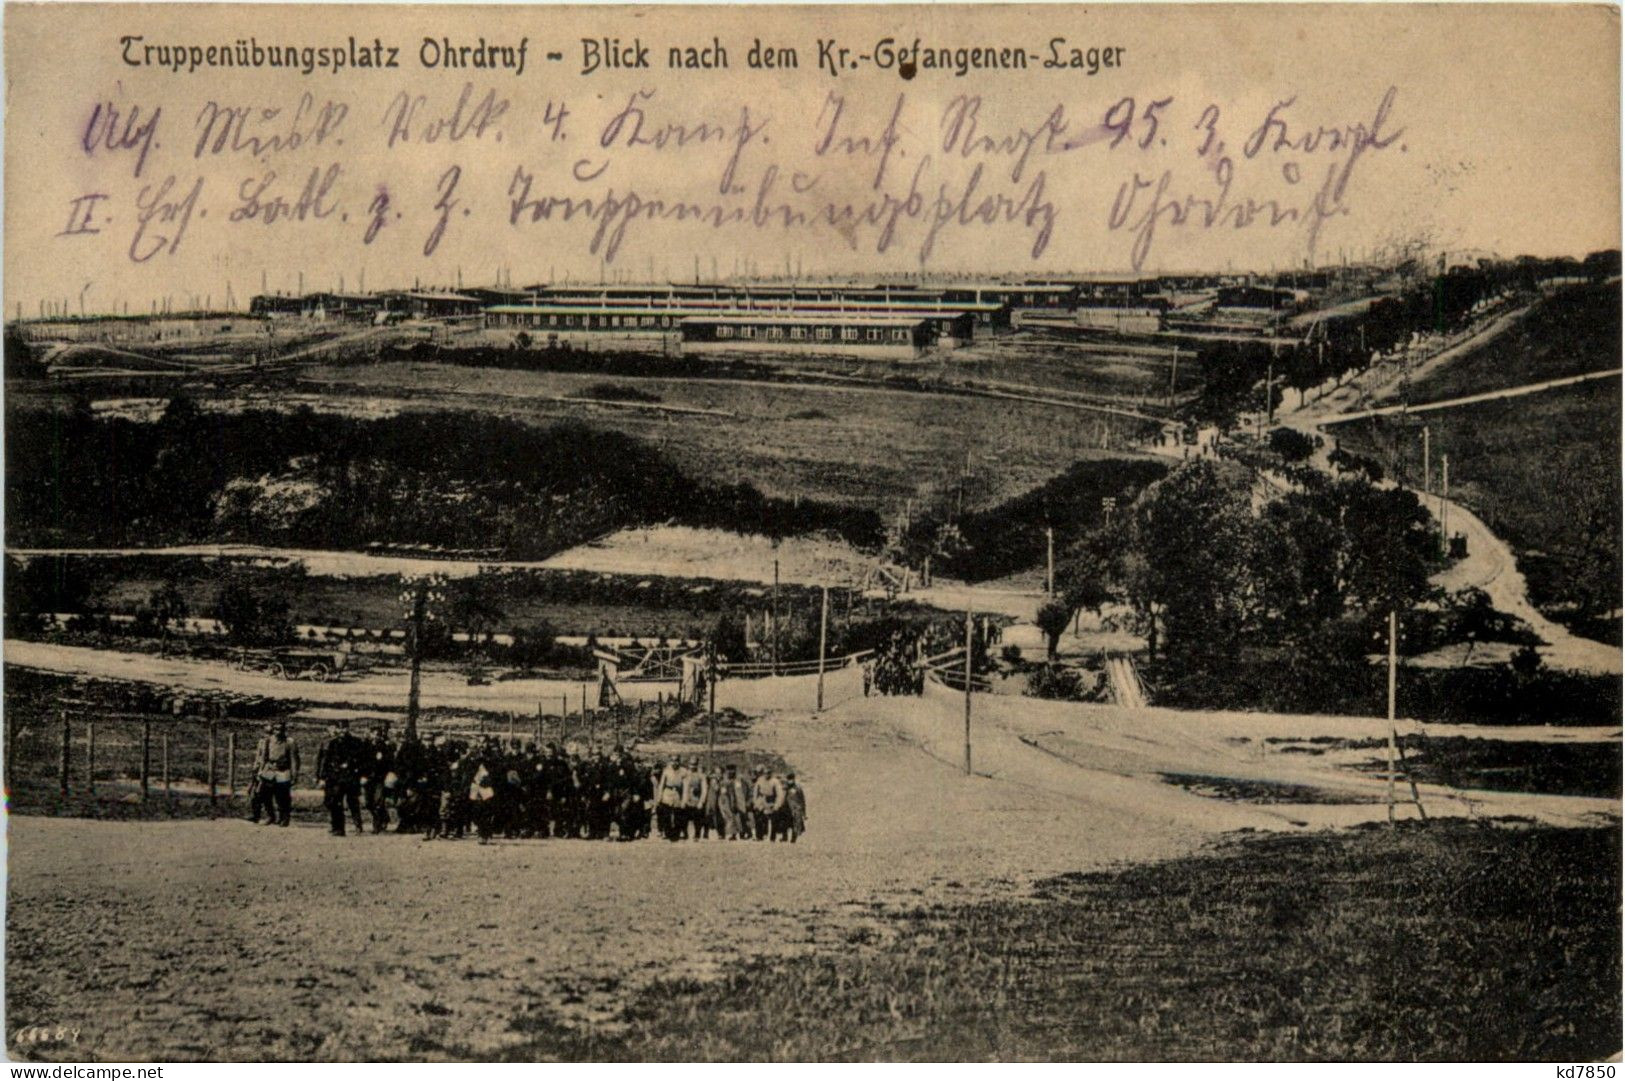 Truppenübungsplatz Ohrdruf - Blick nach dem Kr.-Gefangenen-Lager
Abs. Musk. Volk. 4. Komp. Inf. Regt. 95. 3. Korpl.
II. Ers. Batl. z. Z. Truppenübungsplatz Ohrdruf.
66684
kd7850